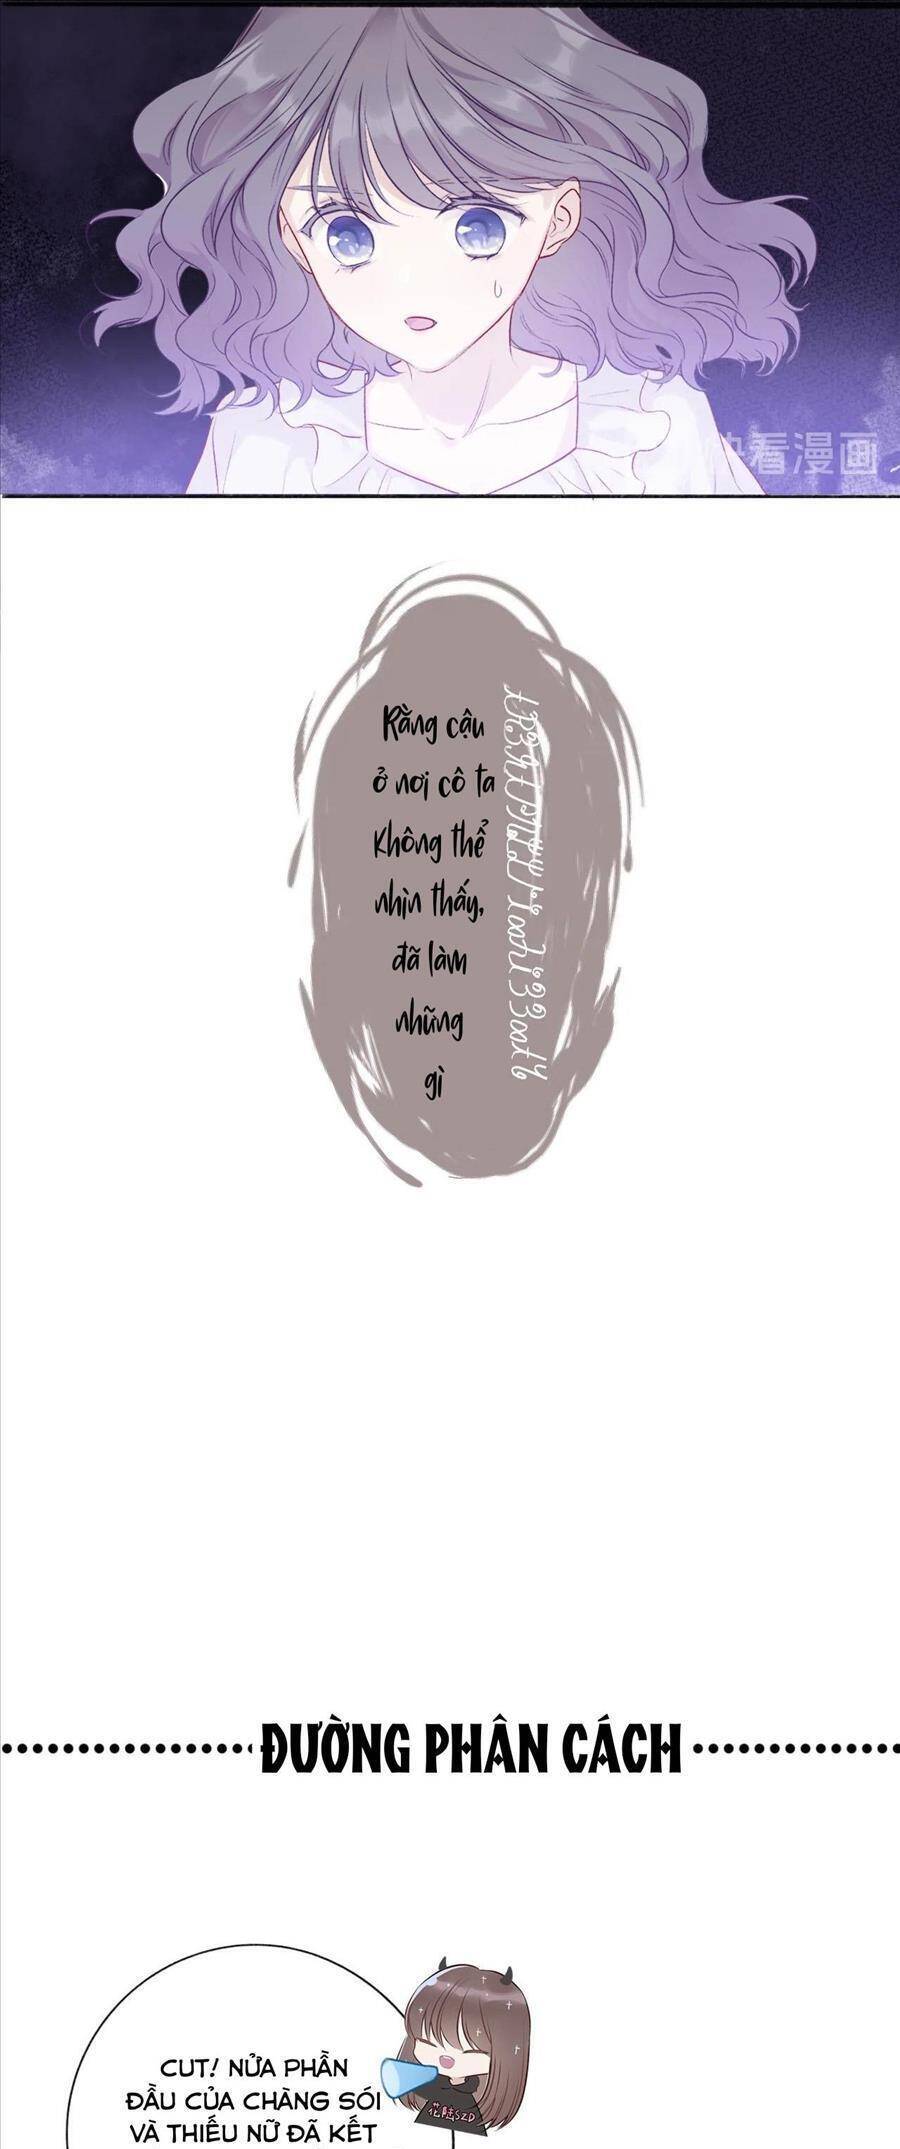 看漫画
Rằng cậu
ở nơi cô ta
không thể
nhìn thấy,
đã làm
những
gì
ĐƯỜNG PHÂN CÁCH
CUT! NỬA PHẦN
ĐẦU CỦA CHÀNG SÓI
VÀ THIẾU NỮ ĐÃ KẾT
花陆SZD